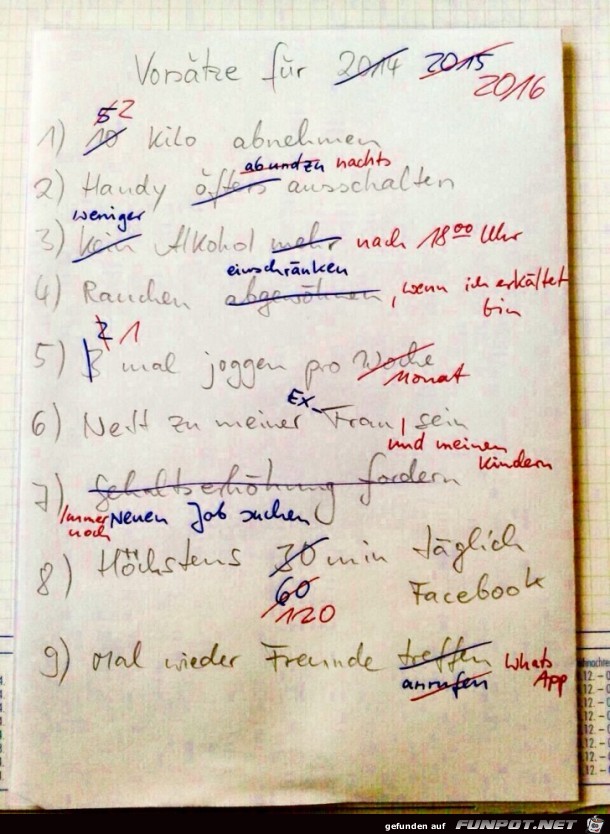 Vorsätze für 2014 2015
2016
5 2
1) 10 Kilo abnehmen
ab und zu nachts
2) Handy öfters ausschalten
weniger
3) Kein Alkohol mehr nach 18 00 Uhr
einschränken
4) Rauchen abgewöhnen, wenn ich erkältet
bin
2 1
5) 3 mal joggen pro Woche
Monat
Ex-
6) Nett zu meiner Frau sein
und meinen
Kindern
7) Gehaltserhöhung fordern
Immer noch Neuen Job suchen
8) Höchstens 30 min täglich
60 Facebook
120
9) Mal wieder Freunde treffen Whats
anrufen App
gefunden auf FUNPOT.NET